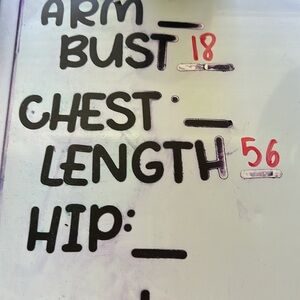 ARM __
BUST 18
CHEST: __
LENGTH 56
HIP: __